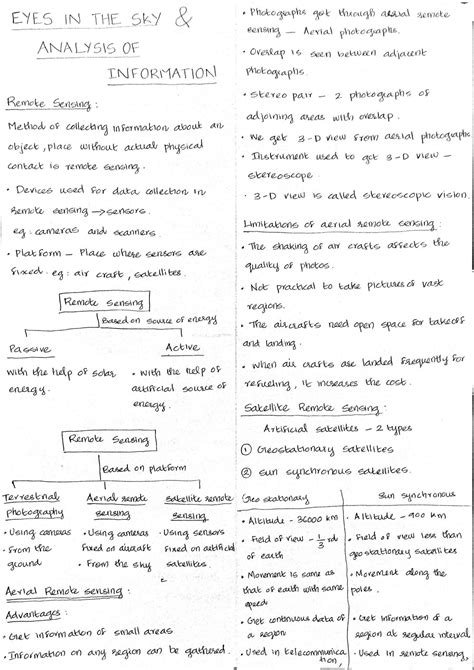 EYES IN THE SKY &
ANALYSIS OF
INFORMATION
Remote Sensing :
Method of collecting information about an
object, place without actual physical
contact is remote sensing.
• Devices used for data collection in
remote sensing → sensors.
eg: cameras and scanners.
• Platform - Place where sensors are
fixed. eg: air craft, satellites.
Remote Sensing
Based on source of energy
Passive
Active
With the help of solar
energy.
• With the help of
artificial source of
energy.
Remote Sensing
Based on platform
Terrestrial
photography
• Using cameras
• From the
ground
Aerial remote
sensing
• Using cameras
fixed on aircraft
• From the sky
Satellite remote
sensing
• Using sensors
fixed on artificial
satellites.
Aerial Remote Sensing :
Advantages :
• Get information of small areas
• Information on any region can be gathered.
• Photographs got through aerial remote
sensing - Aerial photographs.
• Overlap is seen between adjacent
photographs.
• Stereo pair - 2 photographs of
adjoining areas with overlap.
• We get 3-D view from aerial photographs
• Instrument used to get 3-D view -
stereoscope
• 3-D view is called stereoscopic vision.
Limitations of aerial remote sensing :
• The shaking of air crafts affects the
quality of photos.
• Not practical to take pictures of vast
regions.
• The aircrafts need open space for takeoff
and landing.
• When air crafts are landed frequently for
refueling, it increases the cost.
Satellite Remote Sensing :
Artificial satellites - 2 types
① Geostationary satellites
② Sun synchronous satellites.
Geo stationary
• Altitude - 36000 km
• Field of view - 1/3 rd
of earth
• Movement is same as
that of earth with same
speed.
• Get continuous data of
a region
• Used in telecommunica
tion
Sun synchronous
• Altitude - 900 km.
• Field of view less than
geostationary satellites
• Movement along the
poles.
• Get information of a
region at regular interval.
• Used in remote sensing.